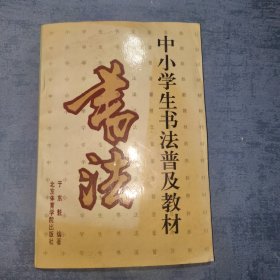 中小学生书法普及教材
书法
于东乾 编著
北京体育学院出版社